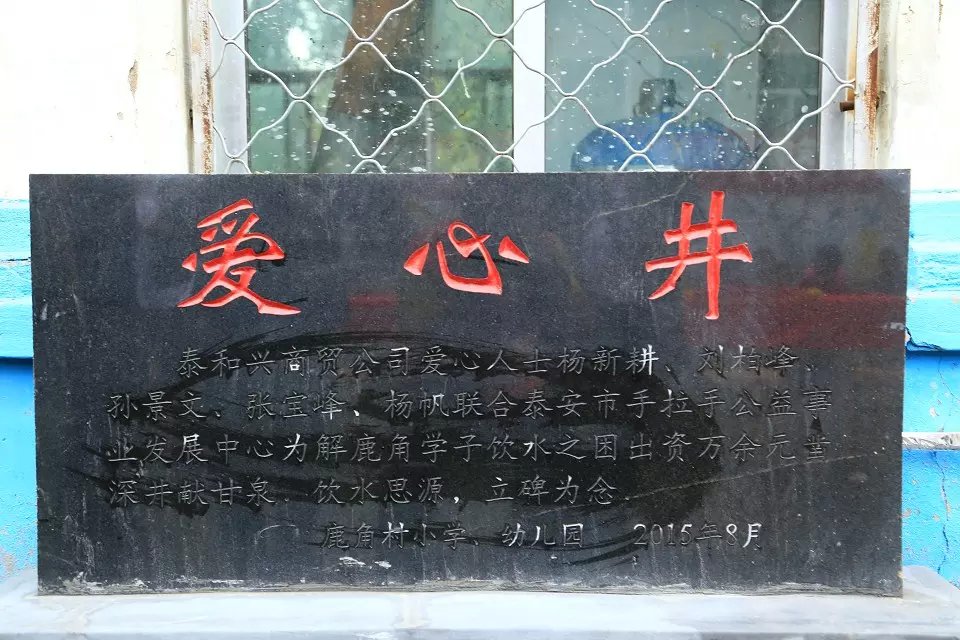 爱心井
泰和兴商贸公司爱心人士杨新耕、刘柏峰、
孙景文、张宝峰、杨帆联合泰安市手拉手公益事
业发展中心为解鹿角学子饮水之困出资万余元凿
深井献甘泉．饮水思源，立碑为念．
鹿角村小学、幼儿园 2015年8月